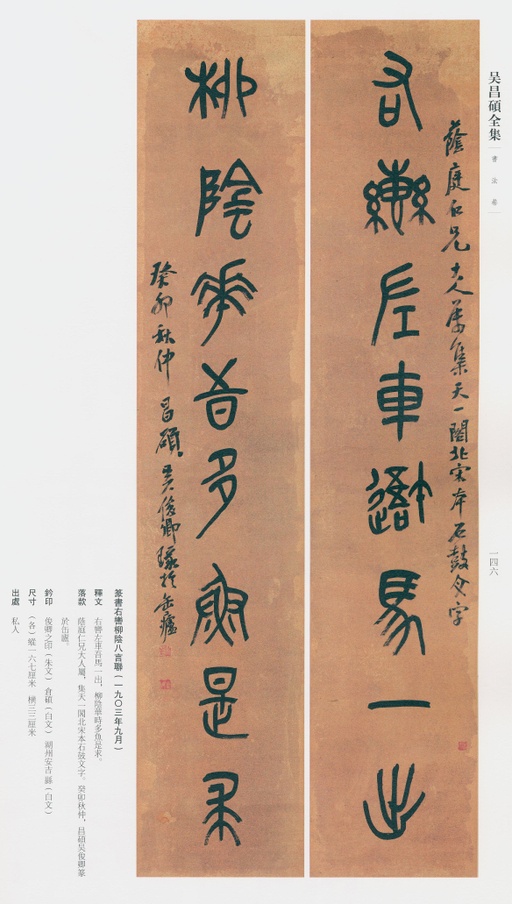 吴昌碩全集
書法卷
一四六
蔭庭仁兄大人屬集天一閣北宋本石鼓文字
右轡左車吾馬一出
柳陰華旹多魚是求
癸卯秋仲 昌碩吳俊卿篆於缶廬
篆書右轡柳陰八言聯（一九〇三年九月）
釋文 右轡左車吾馬一出，柳陰華時多魚是求。
落款 蔭庭仁兄大人屬，集天一閣北宋本石鼓文字。癸卯秋仲，昌碩吴俊卿篆
於缶廬。
鈐印 俊卿之印（朱文） 倉碩（白文） 湖州安吉縣（白文）
尺寸 （各）縱一六七厘米 橫三三厘米
出處 私人